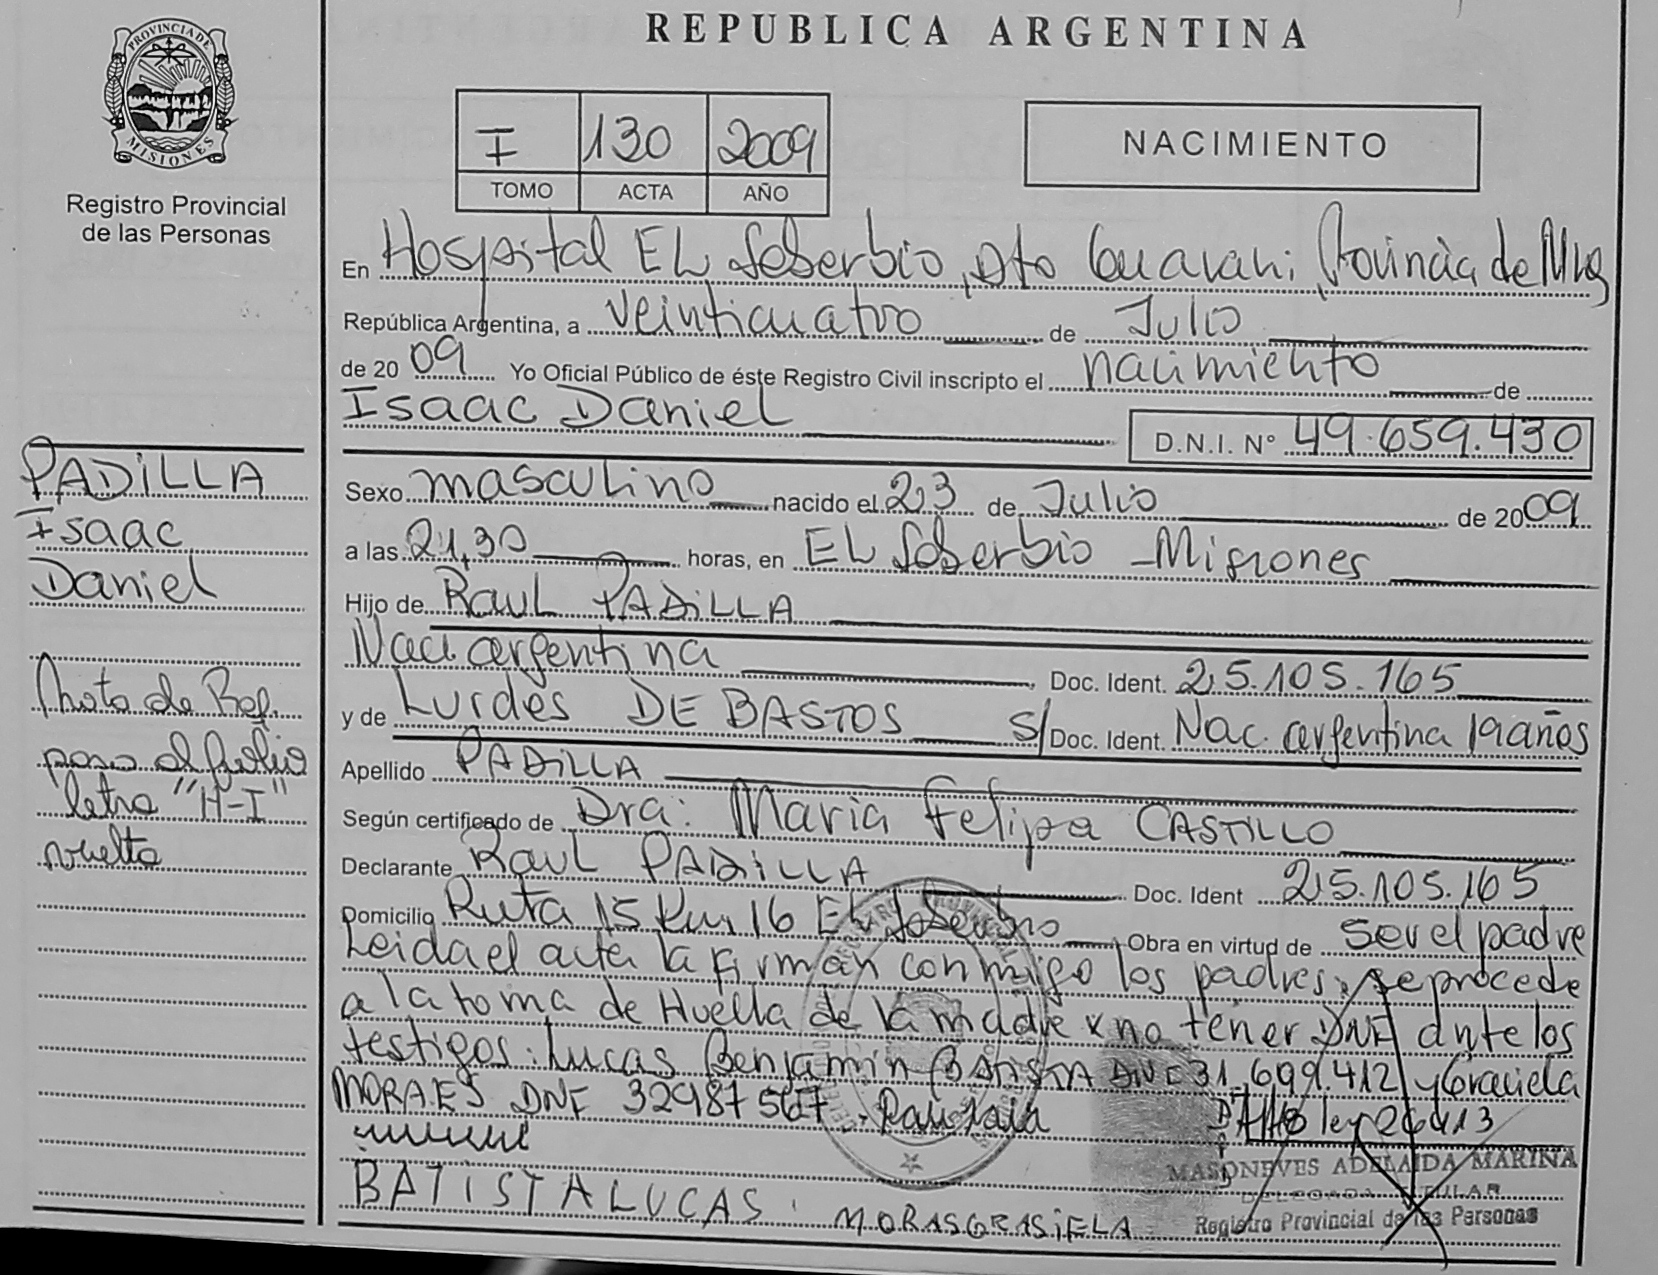 PROVINCIA DE
MISIONES
Registro Provincial
de las Personas
REPUBLICA ARGENTINA
I 130 2009
TOMO ACTA AÑO
NACIMIENTO
En Hospital EL Soberbio, Dto Guarani, Provincia de Mnes
República Argentina, a veinticuatro de Julio
de 20 09 Yo Oficial Público de éste Registro Civil inscripto el nacimiento de
Isaac Daniel D.N.I. Nº 49.659.430
Sexo masculino nacido el 23 de Julio de 20 09
a las 21,30 horas, en EL Soberbio - Misiones
Hijo de Raul PADiLLA
Naci. argentina Doc. Ident. 25.105.165
y de Lurdes DE BASTOS S/ Doc. Ident. Nac. argentina 19 años
Apellido PADiLLA
Según certificado de Dra: Maria Felipa CASTILLO
Declarante Raul PADiLLA Doc. Ident 25.105.165
Domicilio Ruta 15 Km 16 EL Soberbio Obra en virtud de ser el padre
Leida el acta la firman conmigo los padres, se procede
a la toma de Huella de la madre x no tener DNI ante los
testigos: Lucas Benjamin BAtistA DNI 31.699.412 y Graciela
MORAES DNI 32987567.
ley 26413
BATISTA LUCAS MORASGRASiELA
MASONEVES ADELAIDA MARINA
DELEGADA TITULAR
Registro Provincial de las Personas
PADiLLA
Isaac
Daniel
Nota de Ref.
paso al folio
letra "H-I"
vuelta